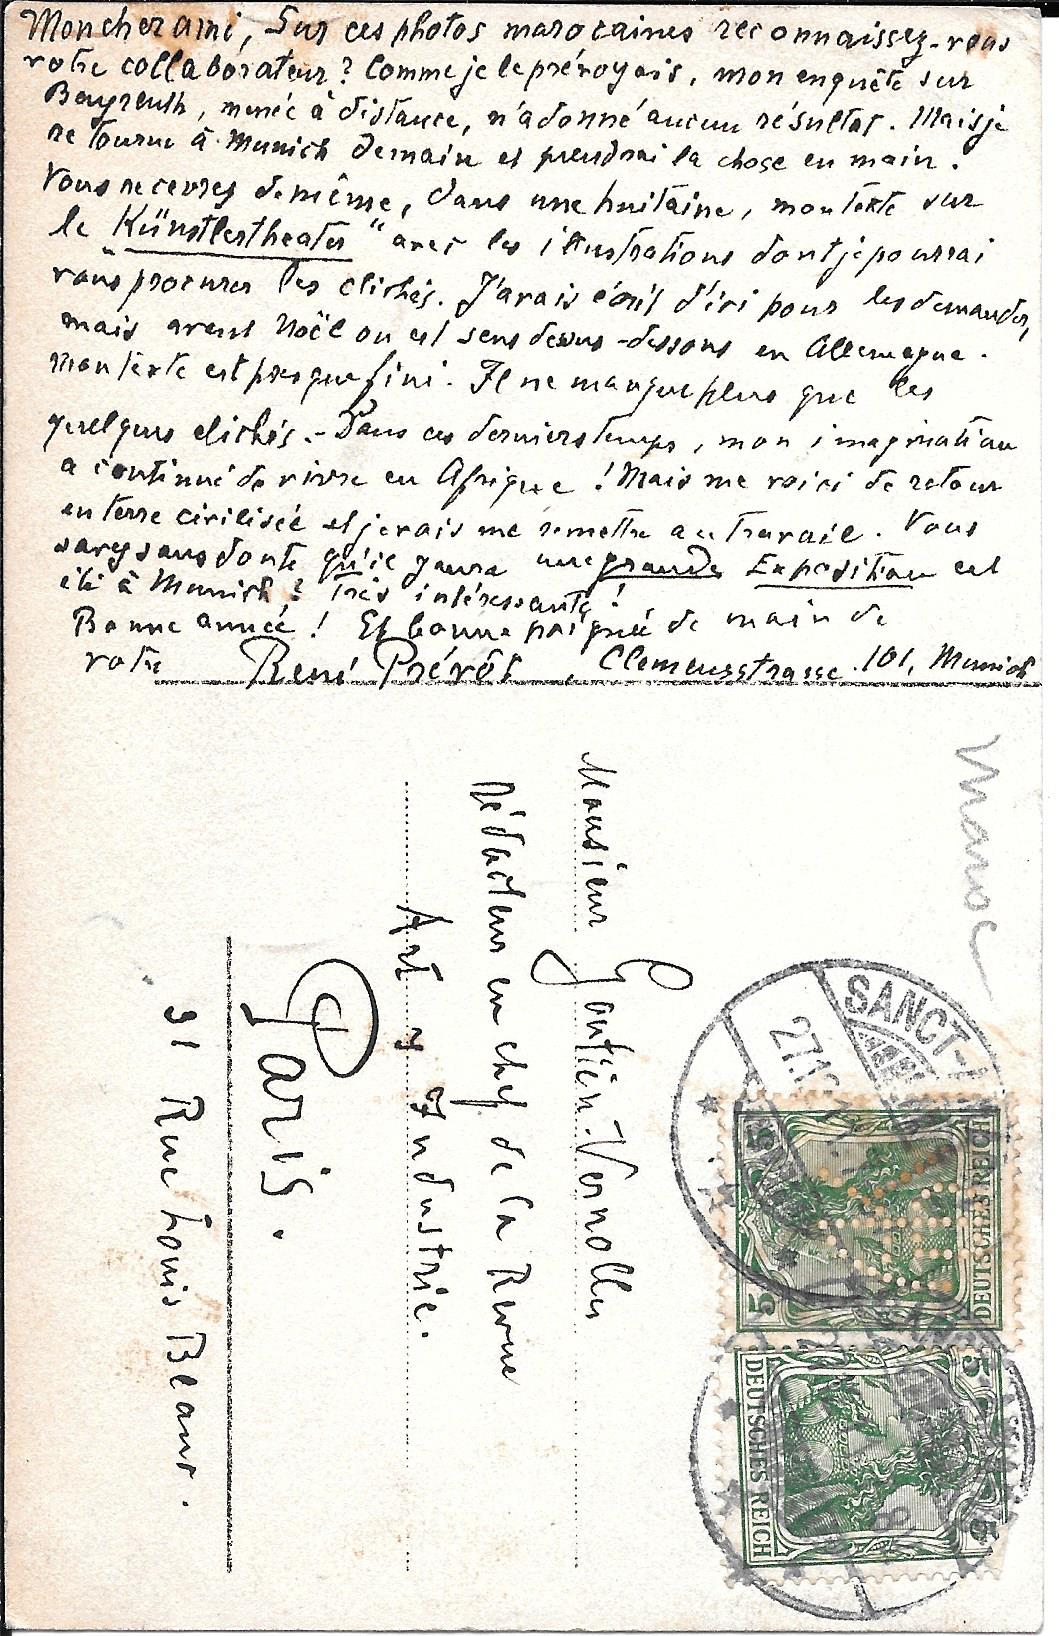 Mon cher ami, Sur ces photos marocaines reconnaissez-vous
votre collaborateur? Comme je le prévoyais, mon enquête sur
Bayreuth, menée à distance, n'a donné aucun résultat. Mais je
retourne à Munich demain et prendrai la chose en main.
Vous recevrez de même, dans une huitaine, mon texte sur
le „Künstlertheater“ avec les illustrations dont je pourrai
vous procurer les clichés. J'avais écrit d'ici pour les demander,
mais avant Noël on est sens dessus-dessous en Allemagne.
Mon texte est presque fini. Il ne manque plus que les
quelques clichés. - Dans ces derniers temps, mon imagination
a continué de vivre en Afrique! Mais me voici de retour
en terre civilisée et je vais me remettre au travail. Vous
savez sans doute qu'il y aura une grande Exposition cet
été à Munich? Très intéressante!
Bonne année! Et bonne poignée de main de
votre René Prévôt, Clemensstrasse 101, Munich
Maroc
Monsieur Goutière-Vernolle
Rédacteur en chef de la Revue
Art y Industrie.
Paris.
31 Rue Louis Blanc.
SANCT-
27.12
DEUTSCHES REICH
5
5
DEUTSCHES REICH
5
5